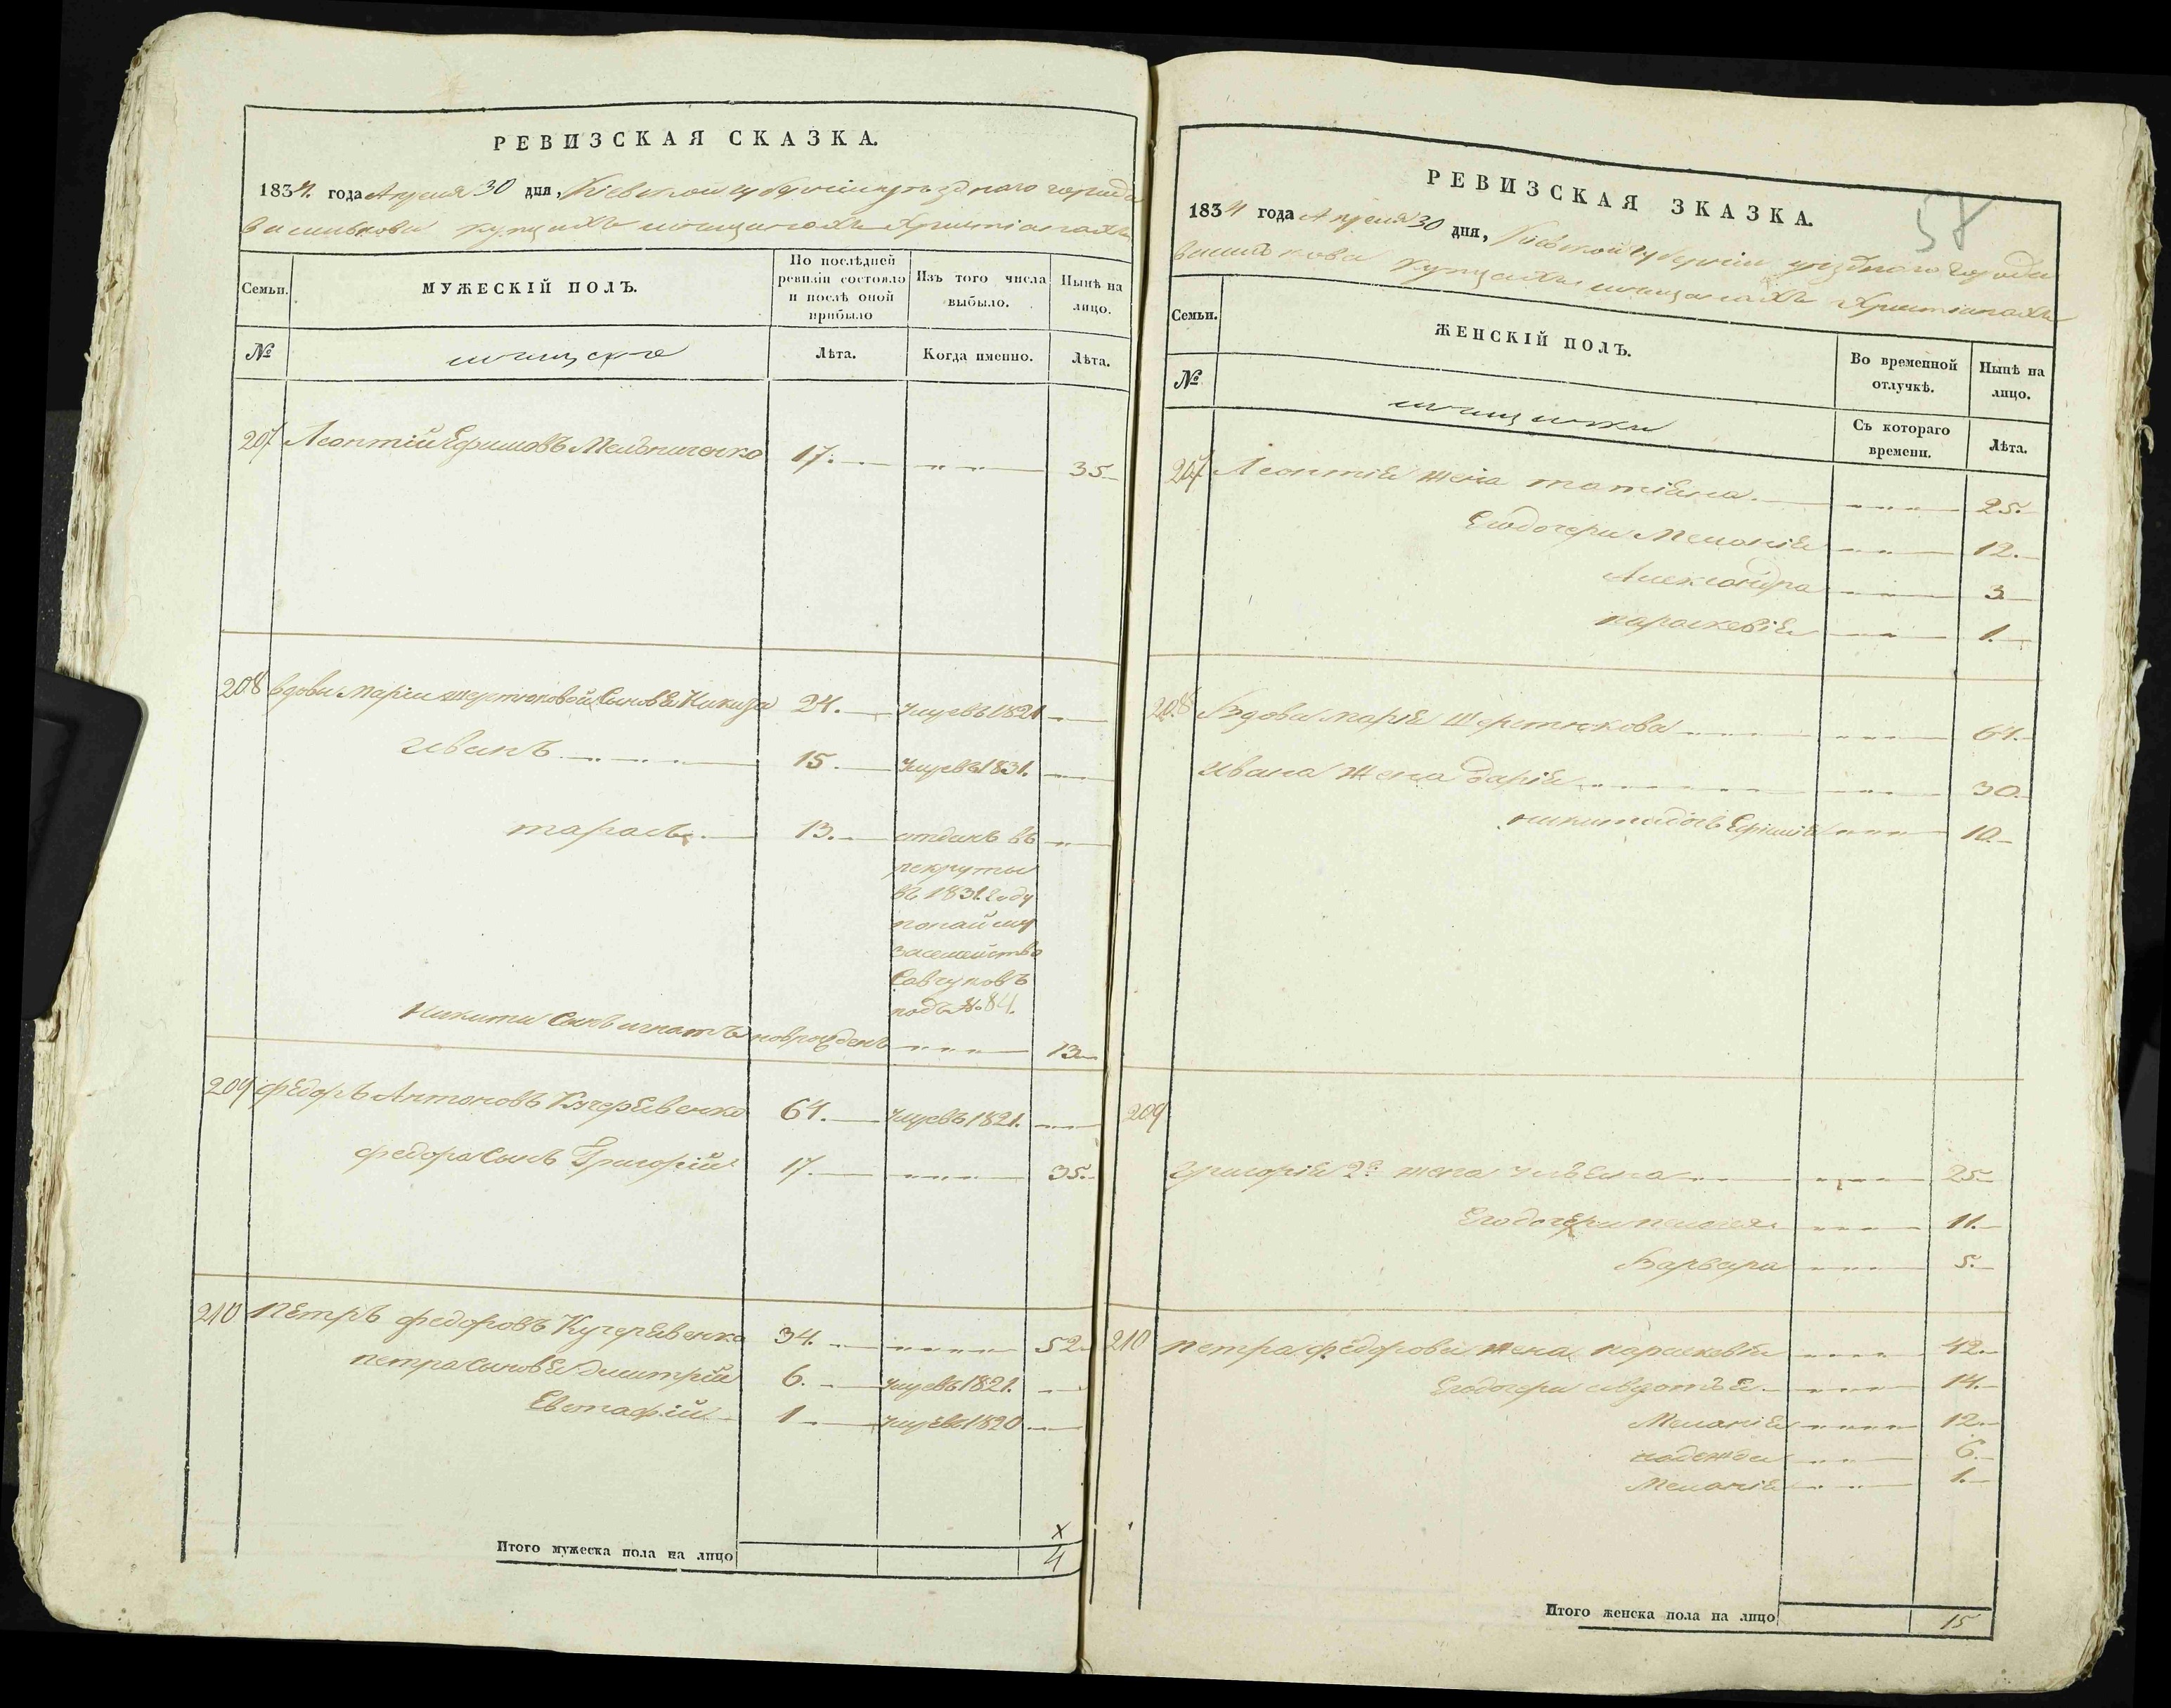 РЕВИЗСКАЯ СКАЗКА.
1834. года Апреля 30 дня, Кіевской губерніи уезднаго города
Василькова купцахъ мещанахъ Христіанахъ
Семьи.
МУЖЕСКІЙ ПОЛЪ.
По послѣдней ревизіи состояло и послѣ оной прибыло
Изъ того числа выбыло.
Нынѣ на лицо.
№
мещане
Лѣта.
Когда именно.
Лѣта.
207 Леонтій Ефимовъ Мельниченко 17. 35
208 вдовы Маріи шеретюковой Сыновья Никита 24. умре въ 1821
Иванъ 15 умре въ 1831.
тарасъ 13. отданъ въ
рекруты
въ 1831 году
по найму
за семейство
Савчуковъ
подъ № 84.
Никиты Сынъ игнатъ новрожденъ 13
209 федоръ Антоновъ Кучеравенко 64. умре въ 1821.
федора Сынъ Григорій 17. 35.
210 Петръ федоровъ Кучеравенко 34. 52
петра Сыновья Дмитрій 6. умре въ 1821.
Евстафій 1 умре въ 1820
х
Итого мужеска пола на лицо 4
58
РЕВИЗСКАЯ ЗКАЗКА.
1834 года Апреля 30 дня, Кіевской губерніи уезднаго города
Василькова купцахъ мещанахъ Христіанахъ
Семьи.
ЖЕНСКІЙ ПОЛЪ.
Во временной отлучкѣ.
Нынѣ на лицо.
№
мещанки
Съ котораго времени.
Лѣта.
207 Леонтія жена татіяна 25.
Его дочери Меланія 12.
Александра 3
параскевія 1.
208 Вдова марія Шеретюкова 61.
Ивана жена дарія 30.
10.
209
григорія 2я жена ульяна 25
Его дочери пелагея 11.
Варвара 5.
210 Петра федорова жена параскевія 42
Его дочери авдотья 14.
Меланія 12
надежда 6.
Меланія 1.
Итого женска пола на лицо 15